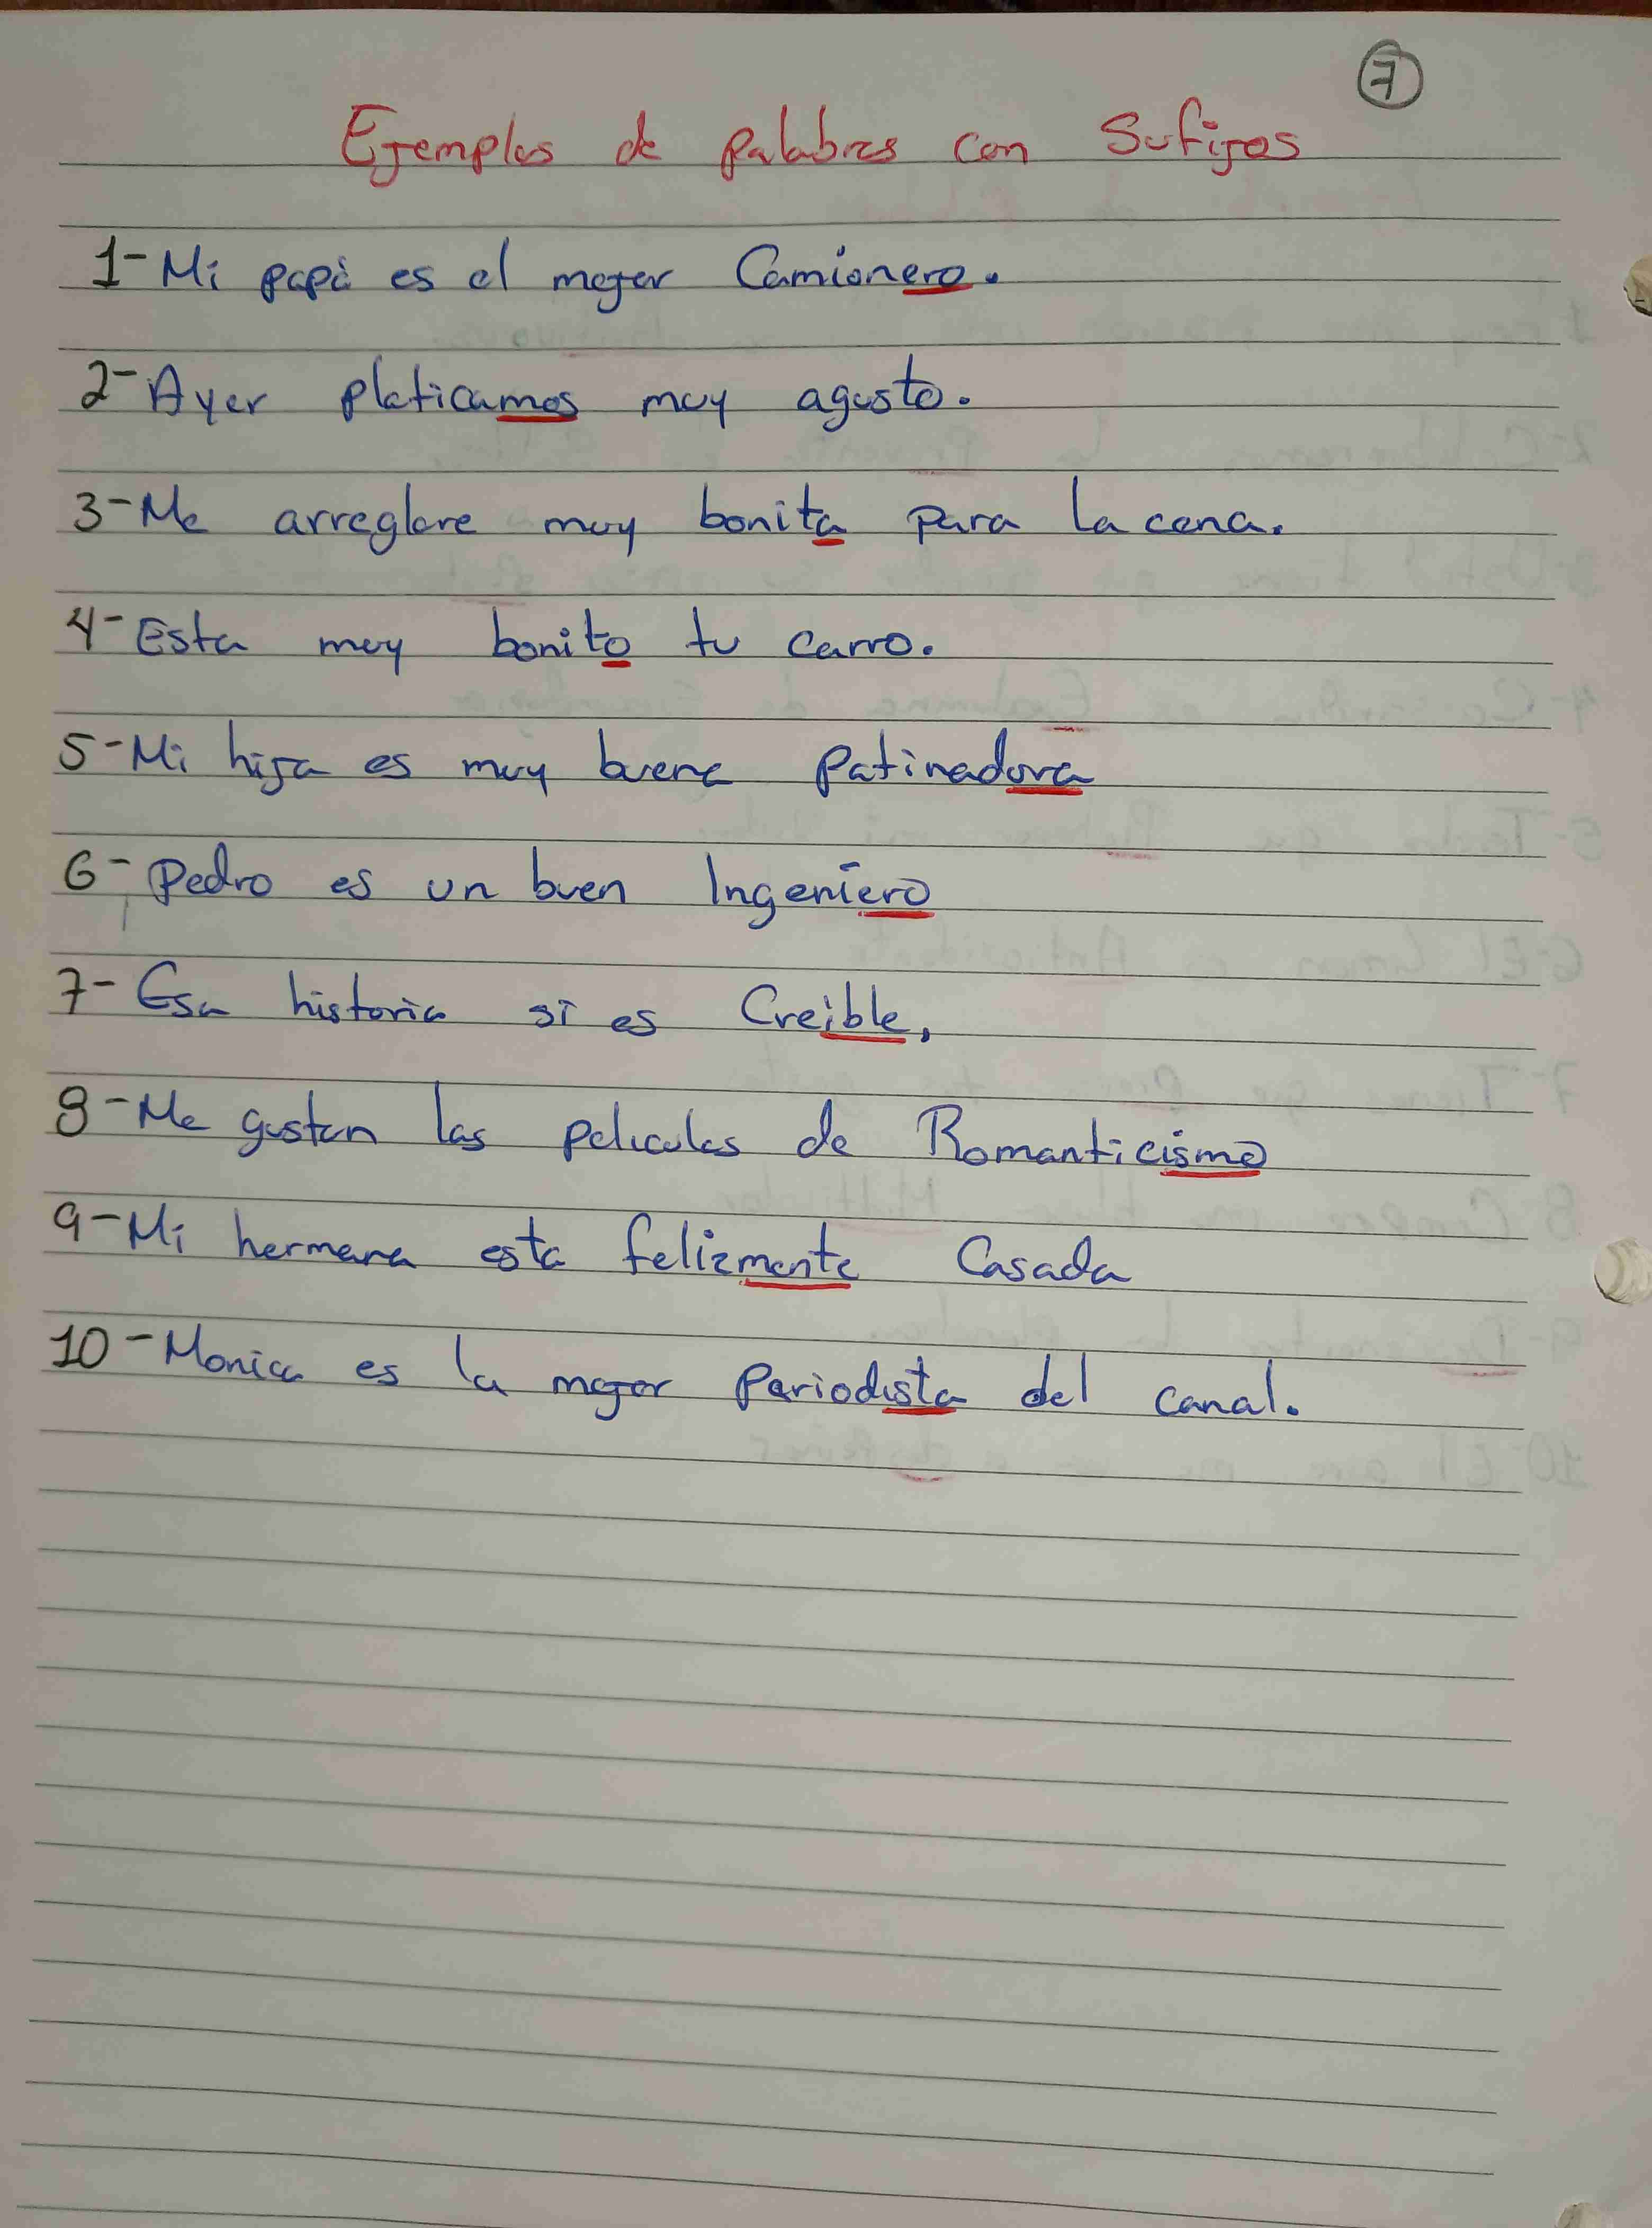 7
Ejemplos de palabras con Sufijos
1- Mi papá es el mejor Camionero.
2- Ayer platicamos muy agusto.
3- Me arreglare muy bonita para la cena.
4- Esta muy bonito tu carro.
5- Mi hija es muy buena Patinadora
6- Pedro es un buen Ingeniero
7- Esa historia sí es Creible,
8- Me gustan las peliculas de Romanticismo
9- Mi hermana esta felizmente Casada
10- Monica es la mejor Periodista del canal.